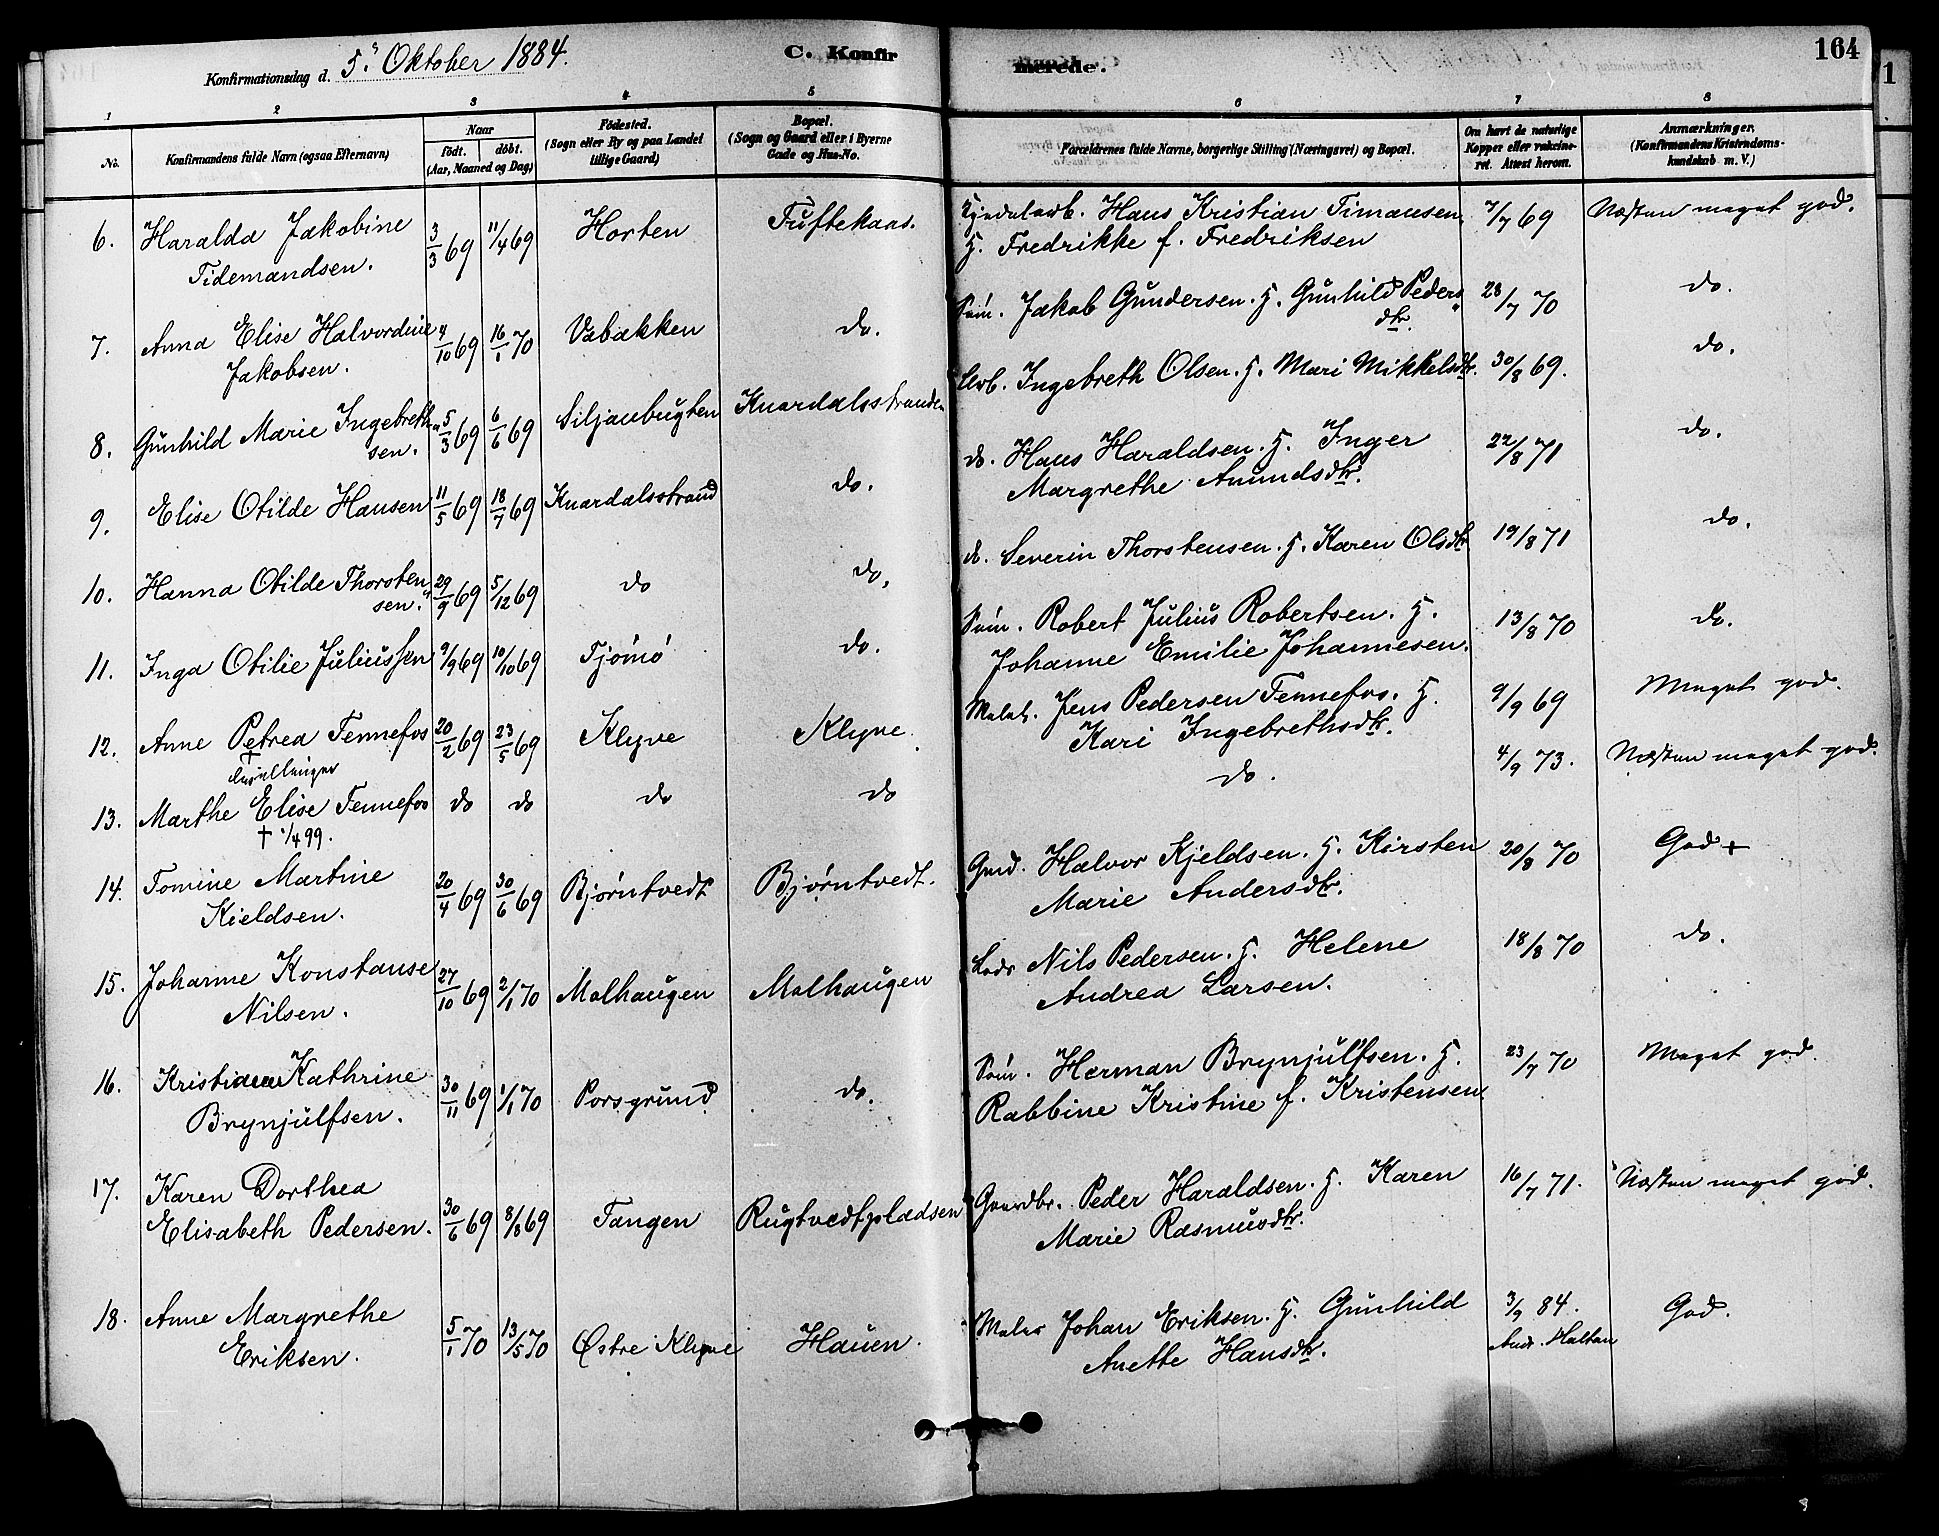 Konfirmationsdag d. 5. Oktober 1884.
C. Konfirmerede.
164
1 2 3 4 5 6 7 8
No.
Konfirmandens fulde Navn (ogsaa Efternavn)
Naar
født. døbt.
(Aar, Maaned og Dag)
Fødested.
(Sogn eller By og paa Landet
tillige Gaard)
Bopæl.
(Sogn og Gaard eller i Byerne
Gade og Hus-No.
Forældrenes fulde Navne, borgerlige Stilling (Næringsvei) og Bopæl.
Om havt de naturlige
Kopper eller vakcineret.
Attest herom.
Anmærkninger.
(Konfirmandens Kristendomskundskab
m. V.)
6. Haralda Jakobine 3/3 69 11/4 69 Horten Tuftekaas. Hans Kristian Timansen 7/7 69 Næsten meget god.
Tidemandsen. H. Fredrikke f. Fredriksen
7. Anna Elise Halvordine 4/10 69 16/1 70 Vabakken do. Søm. Jakob Gundersen. H. Gunhild Peders 28/7 70 do.
Jakobsen. dtr.
8. Gunhild Marie Ingebreth 5/3 69 6/6 69 Siljanbugten Knardalsstranden Arb. Ingebreth Olsen. H. Mari Mikkelsdtr. 30/8 69. do.
sen.
9. Elise Otilde Hansen 11/5 69 18/7 69 Knardalsstrand do. do. Hans Haraldsen. H. Inger 22/8 71 do.
Margrethe Amundsdtr.
10. Hanna Otilde Thorsten 29/9 69 5/12 69 do do. do. Severin Thorstensen. H. Karen Olsdtr. 19/8 71 do.
sen.
11. Inga Otilie Juliussen 9/9 69 10/10 69 Tjømø do. Søm. Robert Julius Robertsen. H. 13/8 70 do.
Johanne Emilie Johannesen.
12. Anne Petrea Fennefos 20/2 69 23/5 69 Klyve Klyve Jens Pedersen Fennefos. H. 9/9 69 Meget god.
Kari Ingebrethsdtr.
Tvillinger
13. Marthe Elise Fennefos do do do do do. 4/9 73. Næsten meget god.
† 1/4 99.
14. Tomine Martine 20/4 69 30/6 69 Bjørntvedt Bjørntvedt. Gmd. Halvor Kjeldsen. H. Kirsten 20/8 70 God +
Kieldsen. Marie Andersdtr.
15. Johanne Konstanse 27/10 69 2/1 70 Molhaugen Molhaugen Lods Nils Pedersen. H. Helene 18/8 70 do.
Nilsen. Andrea Larsen.
16. Kristiane Kathrine 30/11 69 1/1 70 Porsgrund do. Søm. Herman Brynjulfsen. H. 23/7 70 Meget god.
Brynjulfsen. Rabbine Kristine f. Kristensen
17. Karen Dorthea Gaardbr. Peder Haraldsen. H. Karen 16/7 71. Næsten meget god.
Elisabeth Pedersen. 30/6 69 8/8 69 Tangen Rugtvedtpladsen Marie Rasmusdtr.
18. Anne Margrethe Maler Johan Eriksen. H. Gunhild 3/9 84. God.
Eriksen. 5/1 70 13/5 70 Østre Klyve Hauen. Anette Hansdtr. Andr. Holtan